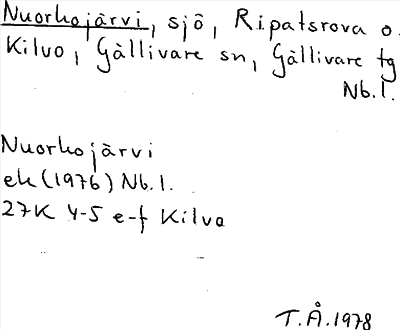 Nuorhojärvi, sjö, Ripatsrova o.
Kilvo, Gällivare sn, Gällivare tg
Nb.l.
Nuorhojärvi
ek (1976) Nb.l.
27K 4-5 e-f Kilva
T.Å. 1978